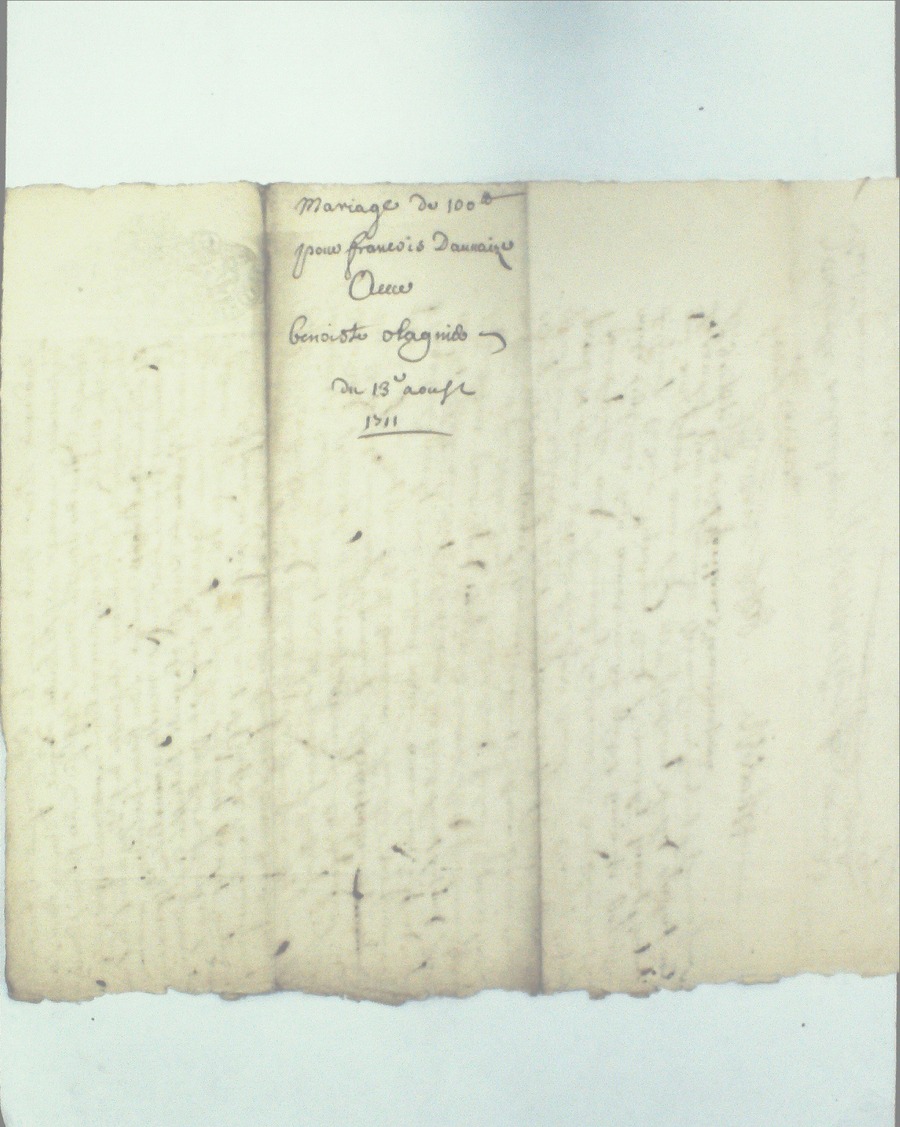 Mariage de 100lt
pour francois Daunaize
Avec
benoiste olagnier
du 13e aoust
1711